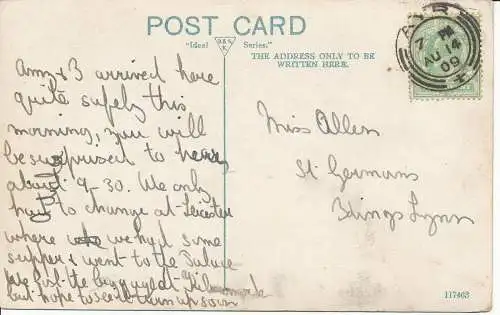 POST CARD
"Ideal Series."
THE ADDRESS ONLY TO BE
WRITTEN HERE.
AYR
7 PM
AU 14
09
Amy & B arrived here
quite safely this
morning, you will
be surprised to hear,
about 9-30. We only
had to change at Leicester
where we had some
supper & went to the Palace
We lost the luggage at Kilmarnock
but hope to see it turn up soon
Miss Allen
St Germans
Kings Lynn
117463